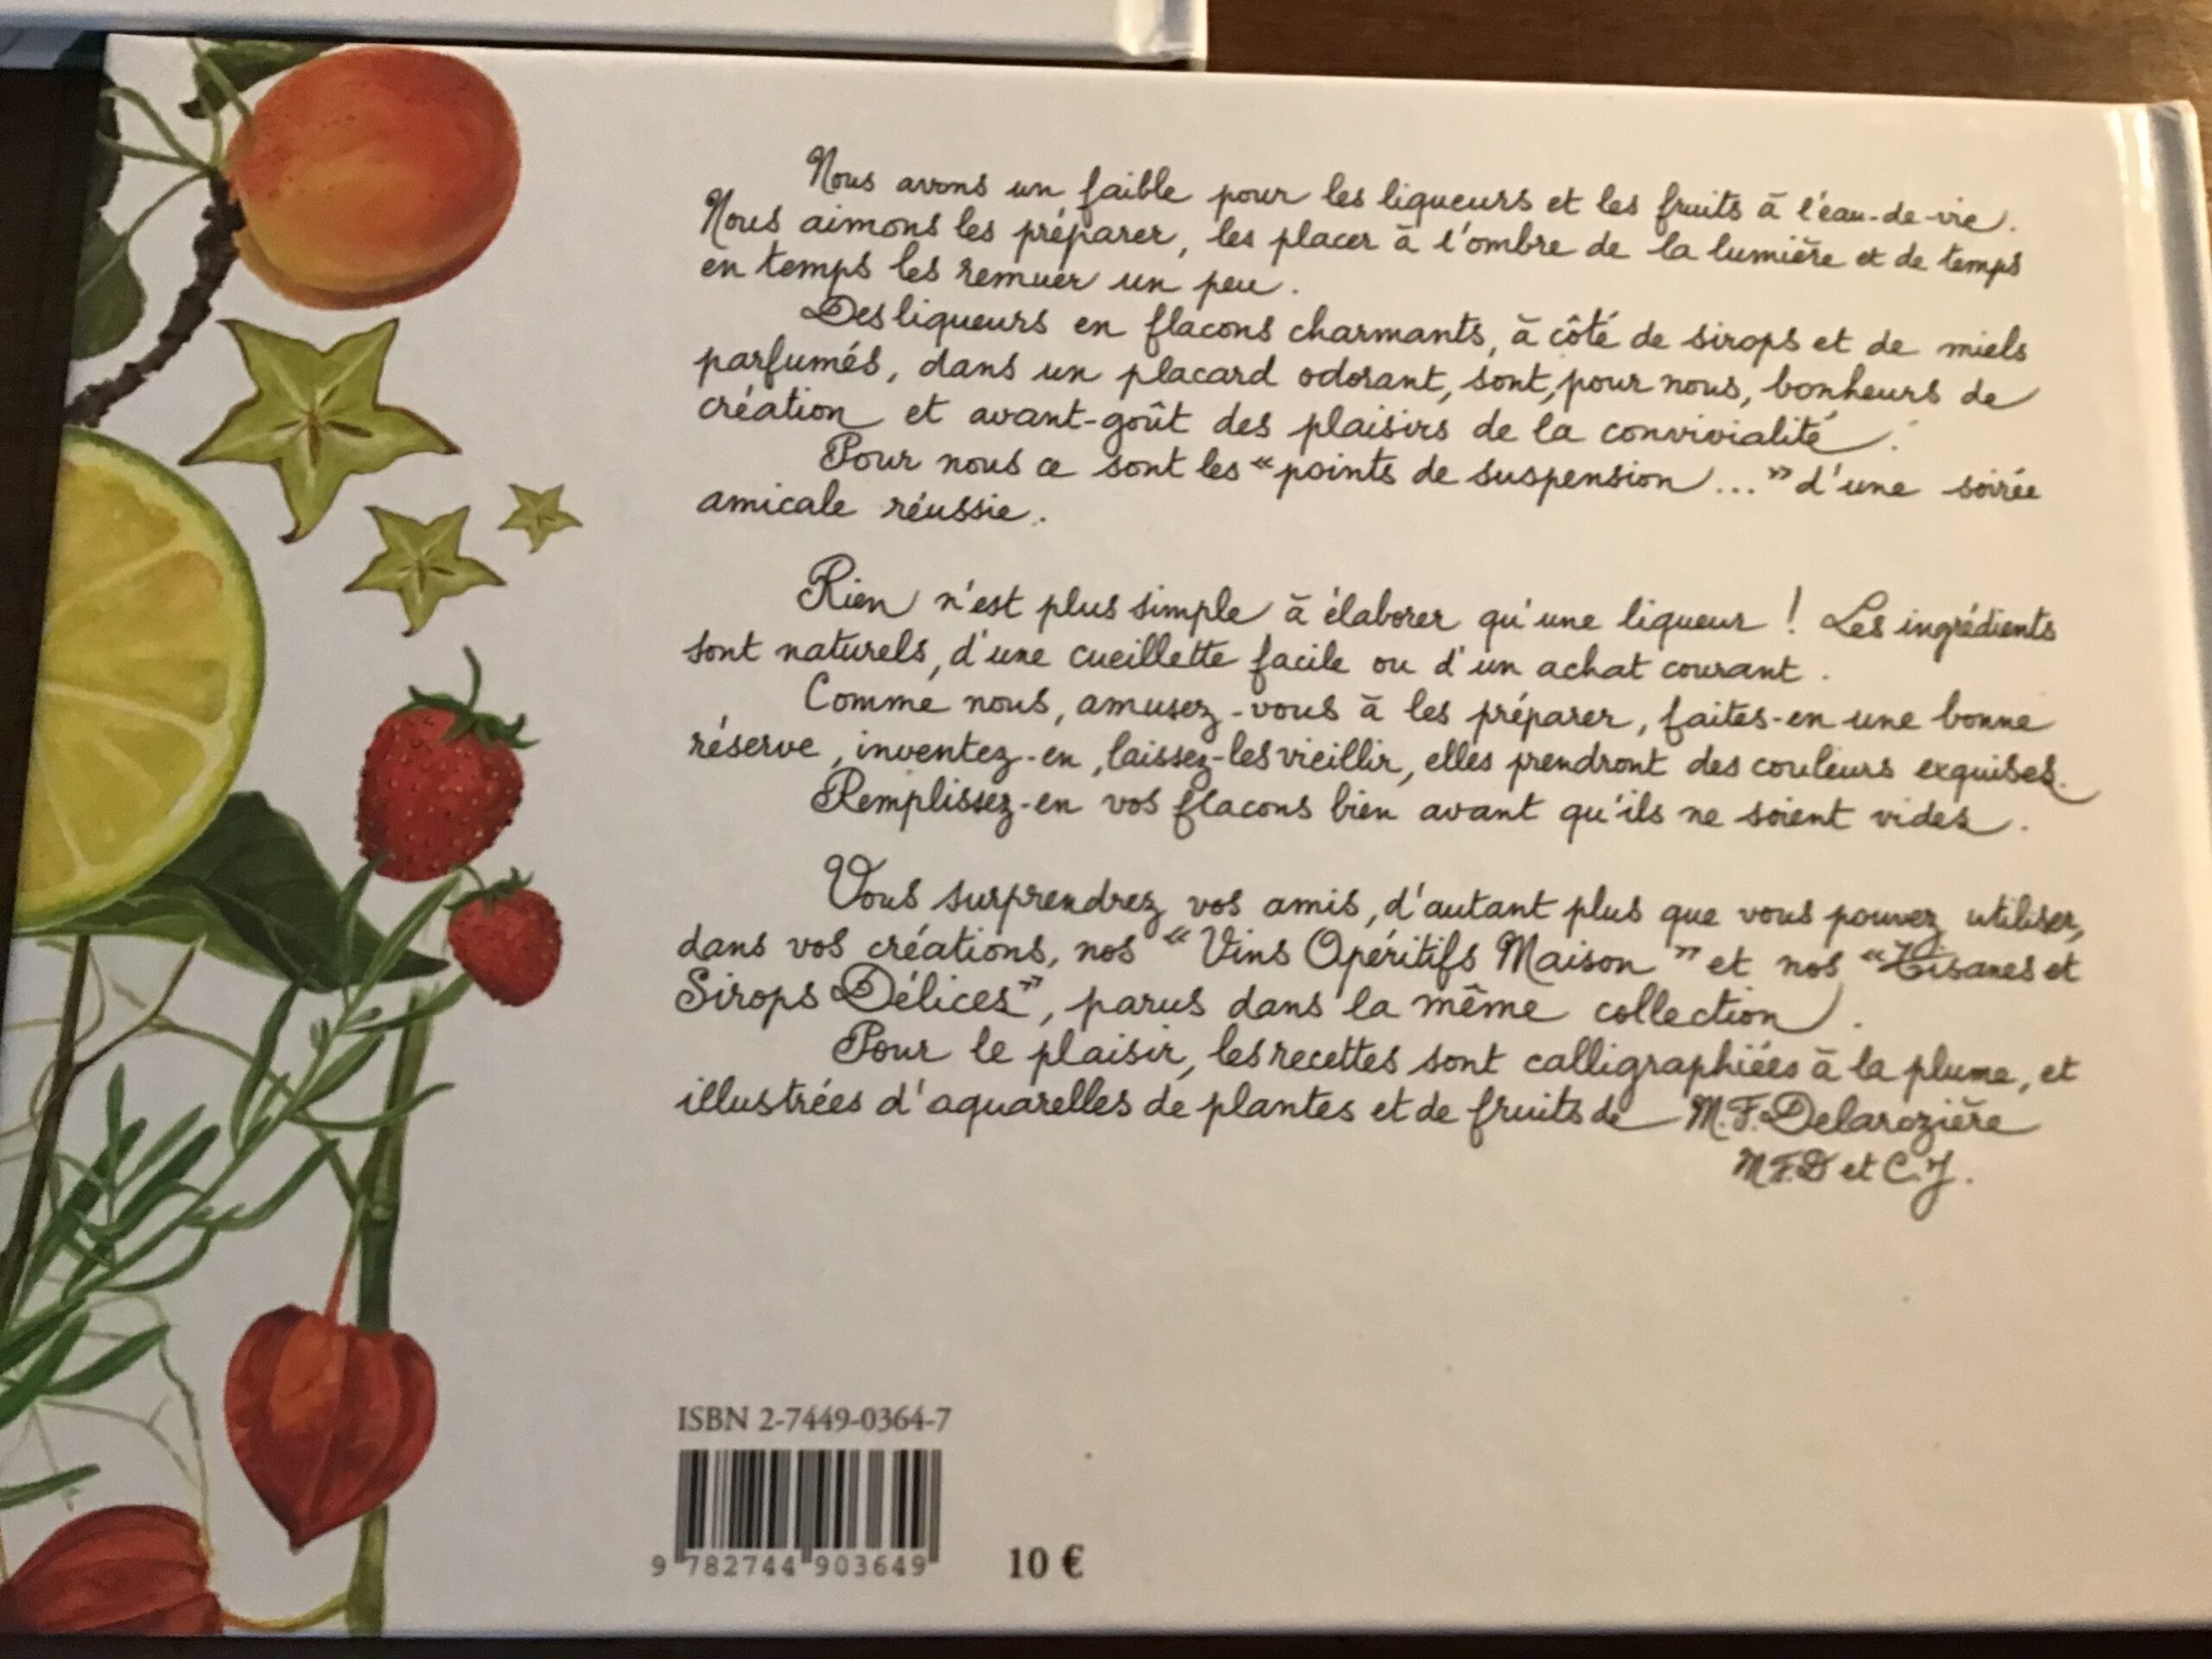 Nous avons un faible pour les liqueurs et les fruits à l'eau-de-vie.
Nous aimons les préparer, les placer à l'ombre de la lumière et de temps
en temps les remuer un peu.
Des liqueurs en flacons charmants, à côté de sirops et de miels
parfumés, dans un placard odorant, sont, pour nous, bonheurs de
création et avant-goût des plaisirs de la convivialité.
Pour nous ce sont les « points de suspension... » d'une soirée
amicale réussie.
Rien n'est plus simple à élaborer qu'une liqueur ! Les ingrédients
sont naturels, d'une cueillette facile ou d'un achat courant.
Comme nous, amusez-vous à les préparer, faites-en une bonne
réserve, inventez-en, laissez-les vieillir, elles prendront des couleurs exquises.
Remplissez-en vos flacons bien avant qu'ils ne soient vides.
Vous surprendrez vos amis, d'autant plus que vous pouvez utiliser,
dans vos créations, nos « Vins Apéritifs Maison » et nos « Tisanes et
Sirops Délices », parus dans la même collection.
Pour le plaisir, les recettes sont calligraphiées à la plume, et
illustrées d'aquarelles de plantes et de fruits de M.F. Delarozière
M.F.D et C.J.
ISBN 2-7449-0364-7
9 782744 903649
10 €